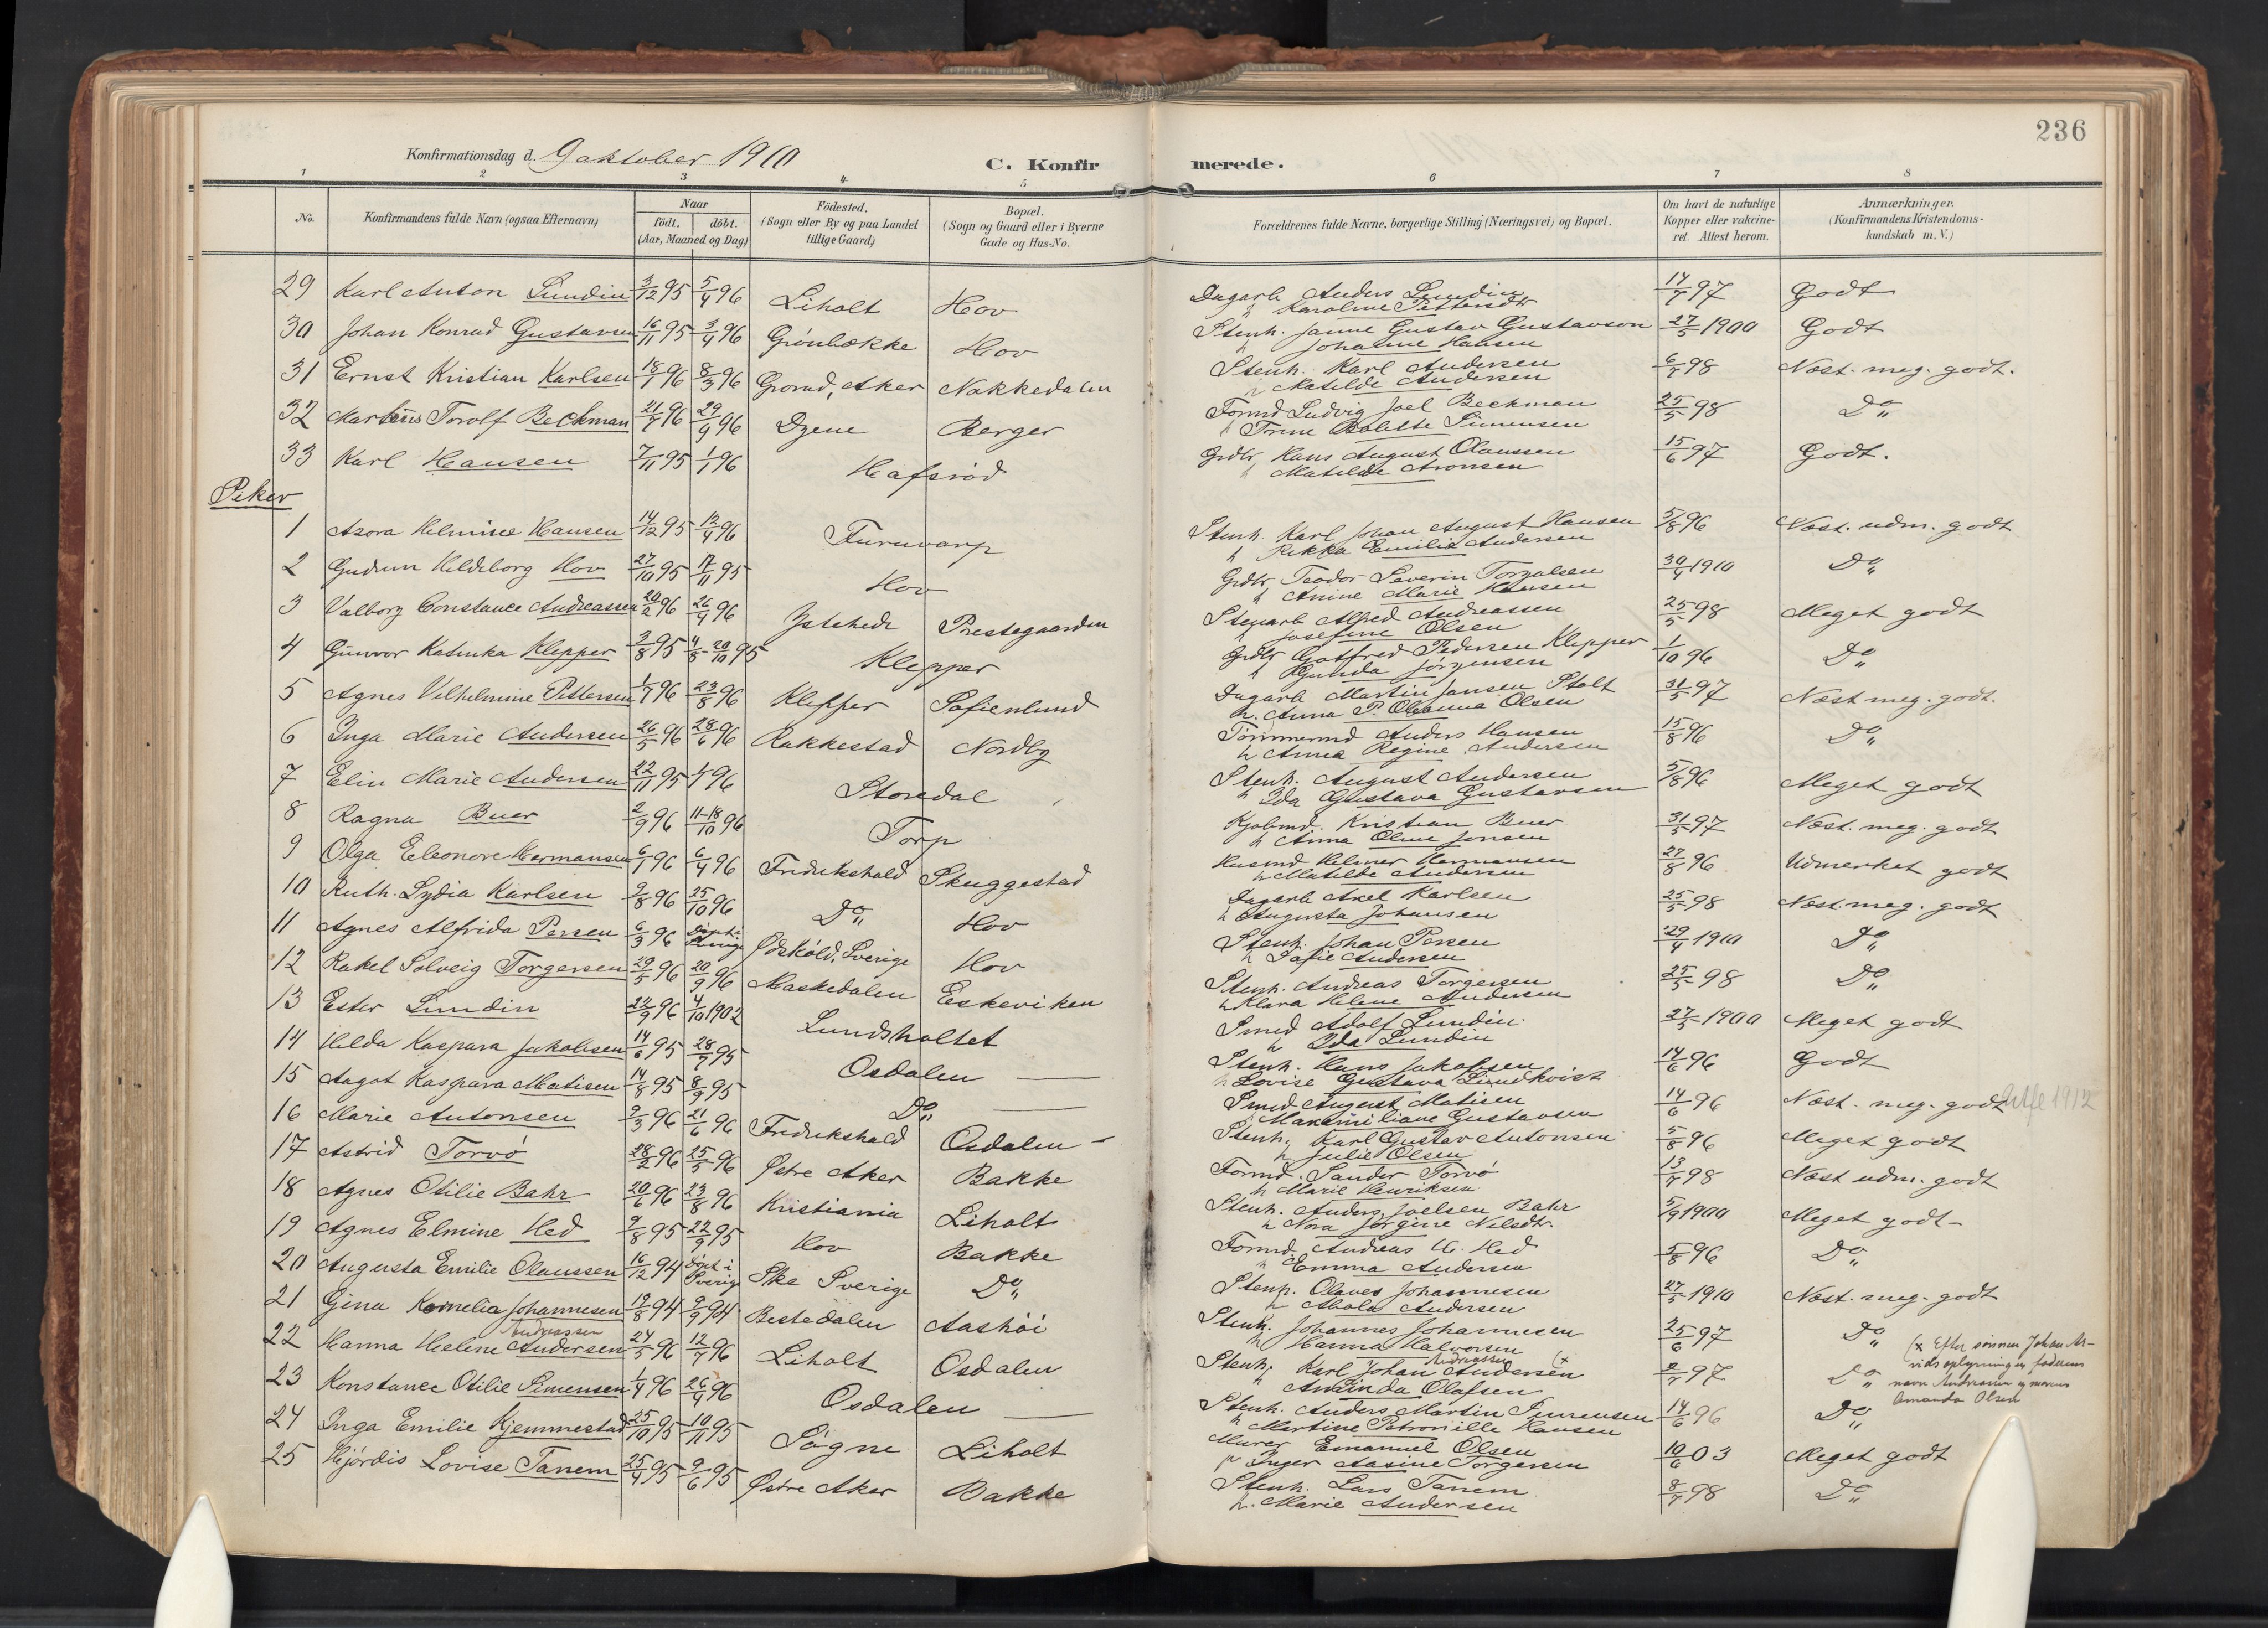 236
Konfirmationsdag d. 9 oktober 1910
C. Konfirmerede.
1 2 3 4 5 6 7 8
No. Konfirmandens fulde Navn (ogsaa Efternavn) Naar født. døbt. (Aar, Maaned og Dag) Fødested. (Sogn eller By og paa Landet tillige Gaard) Bopæl. (Sogn og Gaard eller i Byerne Gade og Hus-No. Forældrenes fulde Navne, borgerlige Stilling (Næringsvei) og Bopæl. Om havt de naturlige Kopper eller vakcineret. Attest herom. Anmærkninger. (Konfirmandens Kristendomskundskab m. V.)
29 Karl Anton Lundin 3/12 95 5/4 96 Liholt Hov Dagarb Anders Lundin 14/7 97 Godt
h Karoline Pettersdtr
30 Johan Konrad Gustavsen 16/11 95 3/4 96 Grönbække Hov Stenh. Janne Gustav Gustavson 27/5 1900 Godt
h Johanne Hansen
31 Ernst Kristian Karlsen 18/1 96 8/3 96 Grorud, Aker Nakkedalen Stenh. Karl Andersen 6/7 98 Næst. meg. godt.
h Matilde Andersen
32 Martinus Torolf Beckman 21/7 96 29/9 96 Berger Formd Ludvig Joel Beckman 25/5 98 Do
h Trine Bolette Simensen
33 Karl Hansen 7/11 95 1/1 96 Hafsröd Grdbr Hans August Olaussen 15/6 97 Godt.
h Matilde Aronsen
Piker
1 Azora Helmine Hansen 14/12 95 12/4 96 Furuvarp Stenh. Karl Johan August Hansen 5/8 96 Næst. udm. godt
h Rikka Emilie Andersen
2 Gudrun Hildeborg Hov 27/10 95 17/11 95 Hov Grdbr Teodor Severin Torgalsen 30/4 1910 Do
h Anine Marie Hansen
3 Valborg Constance Andreassen 20/2 96 26/4 96 Istehede Prestegaarden Stenarb Alfred Andreassen 25/5 98 Meget godt
h Josefine Olsen
4 Gunvor Katinka Klepper 3/8 95 4/8 - 20/10 95 Klepper Grdbr Gotfred Pedersen Klepper 1/10 96 Do
h Gunda Jörgensen
5 Agnes Vilhelmine Pettersen 1/7 96 23/8 96 Klepper Sofienlund Dagarb Martin Jansen Stolt 31/5 97 Næst meg. godt.
h. Anna P. Oleanna Olsen
6 Inga Marie Andersen 26/5 96 28/6 96 Rakkestad Nordby Tömmermd Anders Hansen 15/8 96 Do
h Anna Regine Andersen
7 Elin Marie Andersen 22/11 95 1/1 96 Storedal Stenh. August Andersen 5/8 96 Meget godt
h Ida Gustava Gustavsen
8 Ragna Buer 2/9 96 11-18/10 96 Torp Kjøbmd. Kristian Buer 31/5 97 Næst. meg. godt
h Anna Oline Jonsen
9 Olga Eleonore Hermansen 6/1 96 6/4 96 Fredrikshald Skuggestad Husmd Helmer Hermansen 27/8 96 Udmerket godt
h Matilde Andersen
10 Ruth Lydia Karlsen 9/8 96 25/10 96 Do Hov Dagarb Axel Karlsen 25/5 98 Næst. meg. godt
h Augusta Johansen
11 Agnes Alfrida Persen 6/3 96 Døpt i Sverige Ödsköld, Sverige Hov Stenh. Johan Persen 29/4 1910 Do
h Sofie Andersen
12 Rakel Solveig Torgersen 29/5 96 20/9 96 Maskedalen Eskeviken Stenh. Andreas Torgersen 25/5 98 Do
h Klara Helene Andersen
13 Ester Lundin 22/9 96 4/10 1902 Lundsholtet Smed Adolf Lundin 27/5 1900 Meget godt
h Ida Lundin
14 Hilda Kaspara Jakobsen 14/6 95 28/7 95 Osdalen — Stenh. Hans Jakobsen 14/6 96 Godt
h Lovise Gustava Lindkvist
15 Aagot Kaspara Matisen 14/8 95 8/9 95 Do — Smed August Matisen 14/6 96 Næst. meg. godt 1912
h Maximiliane Gustavsen
16 Marie Antonsen 9/3 96 21/6 96 Fredrikshald Osdalen Stenh. Karl Gustav Antonsen 5/8 96 Meget godt
h Julie Olsen
17 Astrid Torvö 28/2 96 25/5 96 Østre Aker Bakke Formd. Sander Torvö 13/7 98 Næst udm. godt
h Marie Henriksen
18 Agnes Otilie Bahr 20/6 96 23/8 96 Kristiania Liholt Stenh. Anders Joelsen Bahr 5/9 1900 Meget godt
h Nora Jörgine Nilsdtr.
19 Agnes Elmine Hed 9/8 95 22/9 95 Hov Bakke Formd. Andreas H. Hed 5/8 96 Do
h Emma Andersen
20 Augusta Emilie Olaussen 16/12 94 Døpt i Sverige Ske Sverige Do Stenh. Olaves Johannesen 27/5 1910 Næst. meg. godt
h Andersen
21 Gina Kornelia Johannesen 19/8 94 9/9 94 Bestedalen Aashöi Stenh. Johannes Johannesen 25/6 97 Do
h Hanna Halvorsen
22 Hanna Helene Andersen Andreassen 24/5 96 12/7 96 Liholt Osdalen Stenh. Karl Johan Andersen Andreassen (x 2/7 97 Do
h Aminda Olafsen
(x Efter sönnen Johan Arvids oplysning er faderens navn Andreassen og morens Amanda Olsen
23 Konstance Otilie Simensen 1/4 96 26/4 96 Osdalen — Stenh. Anders Martin Simensen 14/6 96 Do
h Martine Petronille Hansen
24 Inga Emilie Kjemmestad 25/10 95 10/11 95 Sögne Liholt Murer Emanuel Olsen 10/6 03 Meget godt
h Inger Aasine Torgersen
25 Hjördis Lovise Tanem 25/4 95 9/6 95 Østre Aker Bakke Stenh. Lars Tanem 8/7 98 Do
h. Marie Andersen